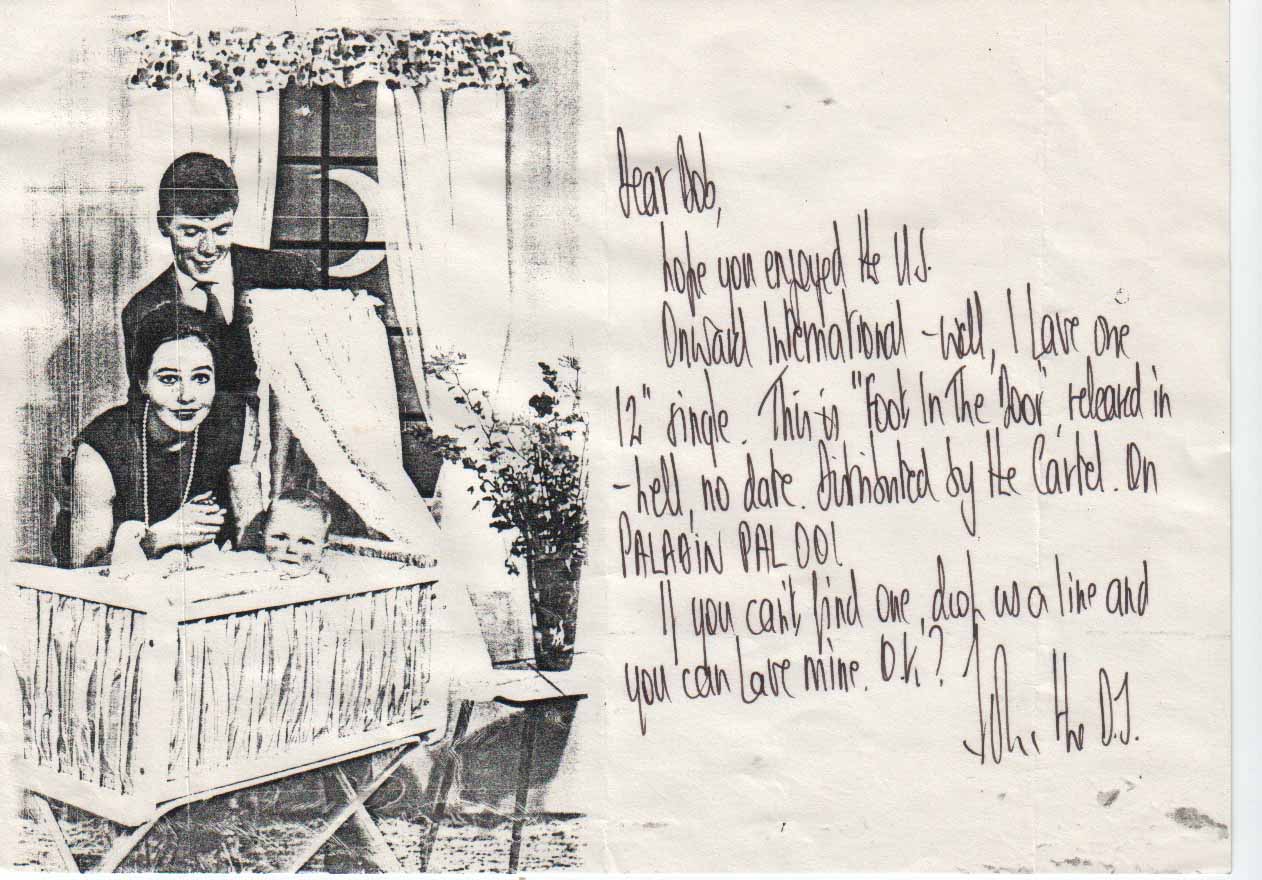 Dear Bob,
hope you enjoyed the U.S.
Onward International - well, I have one
12" single. This is "Foot In The Door", released in
- hell, no date. Distributed by the Cartel. On
PALADIN PAL 001
If you can't find one, drop us a line and
you can have mine. O.K.?
John the D.J.